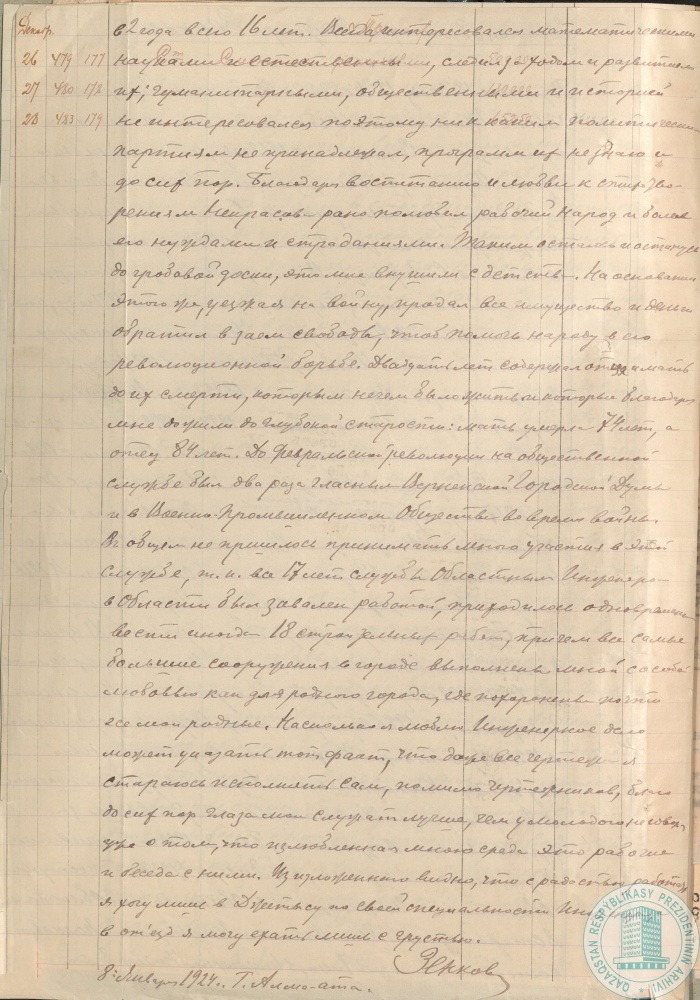 Декабр.
26 479 177
27 480 178
28 483 179
в 2 года всего 16 лет. Всегда интересовался математическими
науками и естественными, следил за ходом и развитием
их; гуманитарными, общественными и историей
не интересовался поэтому ни к каким политическим
партиям не принадлежал, программ их не знаю и
до сих пор. Благодаря воспитанию и любви к стихотво-
рениям Некрасова рано полюбил рабочий народ и болел
его нуждами и страданиями. Таким остался и останусь
до гробовой доски, это мне внушили с детства. На основании
этого же, уезжая на войну, продал все имущество и деньги
обратил в заем свободы, чтоб помочь народу в его
революционной борьбе. Двадцать лет содержал отца и мать
до их смерти, которым нечем было жить и которые благодаря
мне дожили до глубокой старости: мать умерла 74 лет, а
отец 84 лет. До февральской революции на общественной
службе был два раза гласным Верненской Городской Думы
и в Военно-Промышленном Обществе во время войны.
В общем не пришлось принимать много участия в этой
службе, т.к. все 17 лет службы Областным Инженером
в Области был завален работой, приходилось одновременно
вести иногда 18 строительных работ, причем все самые
большие сооружения в городе выполнены мной с особой
любовью как для родного города, где похоронены почти
все мои родные. Насколько я люблю Инженерное дело
может указать тот факт, что даже все чертежи я
стараюсь исполнять сам, помимо чертежников, благо
до сих пор глаза мои служат лучше, чем у молодого не говоря
уже о том, что излюбленная мною среда это рабочие
и беседа с ними. Из изложенного видно, что с радостью работать
я могу лишь в Джетысу по своей специальности
в отъезд я могу ехать лишь с грустью.
Зенков
8 Января 1924 г. Г. Алма-ата.
QAZAQSTAN RESPÝBLIKASY PREZIDENTINIŃ ARHIVI